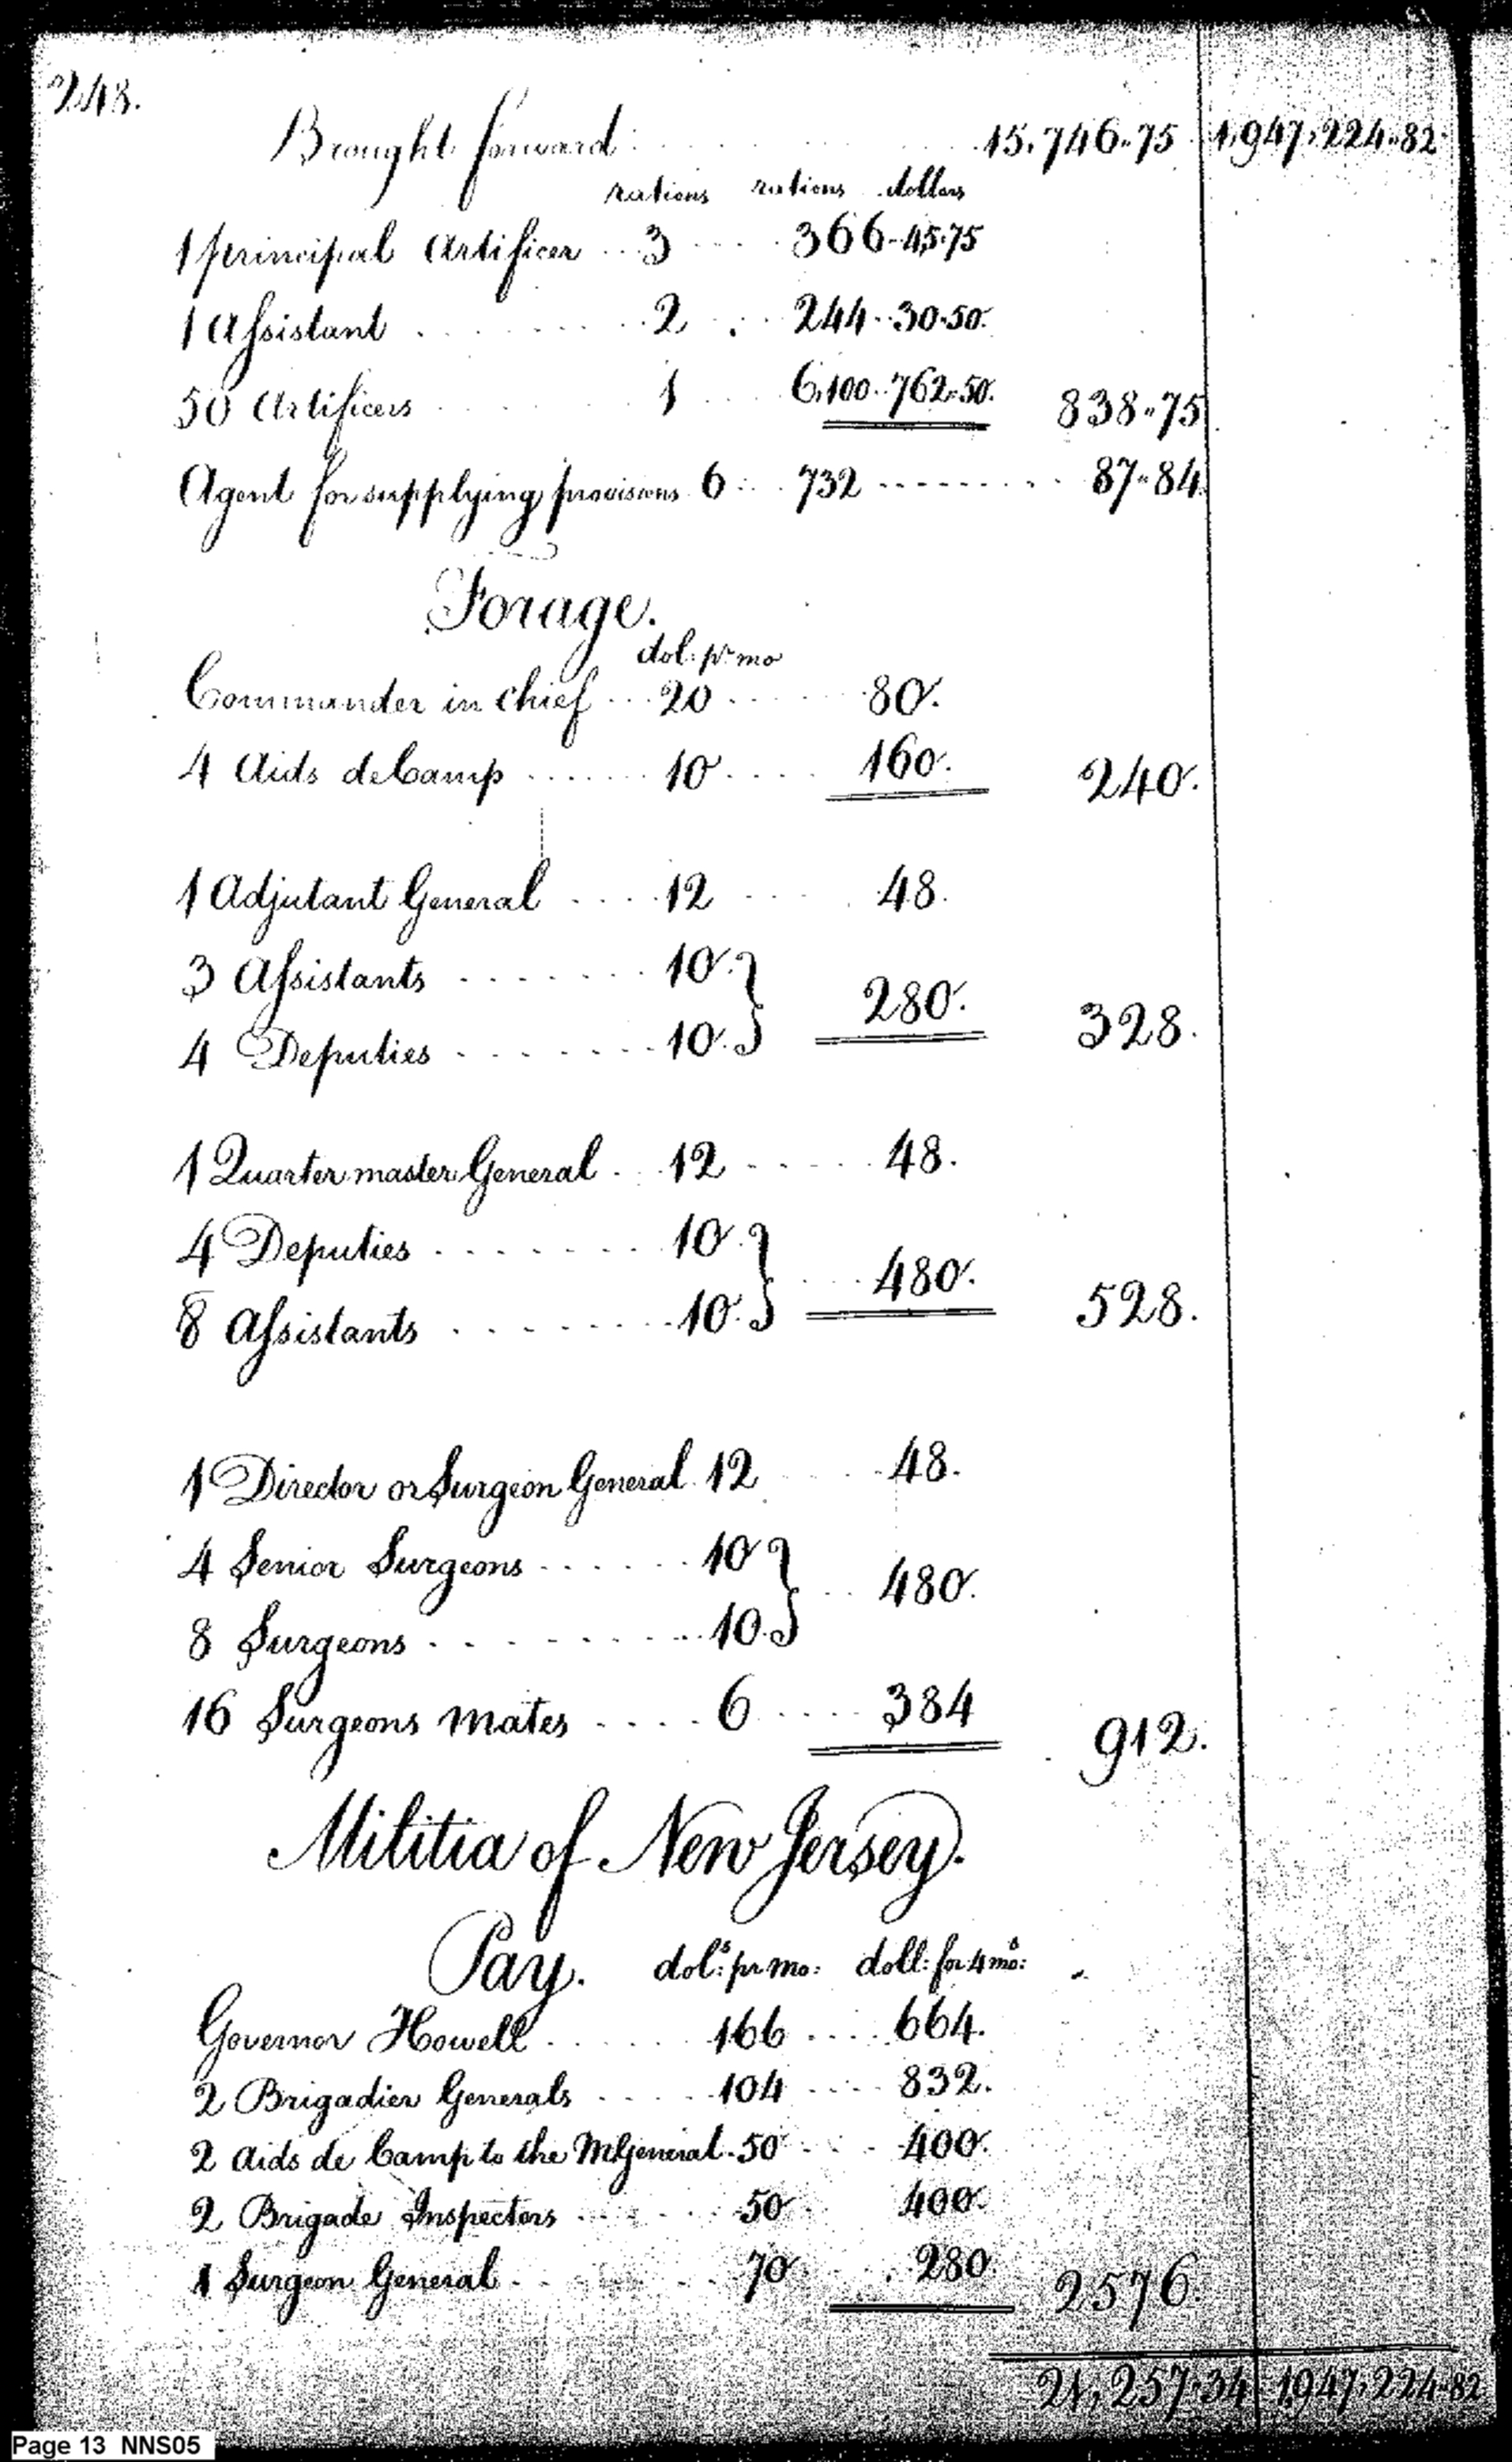 248.
Brought forward 15,746.75 1,947,224.82
rations rations dollars
1 principal Artificer 3 366 45.75
1 Assistant 2 244 30.50.
50 Artificers 1 6,100 762.50. 838.75
Agent for supplying provisions 6 732 87.84
Forage.
dol: pr mo
Commander in chief 20 80.
4 Aids de Camp 10 160. 240.
1 Adjutant General 12 48.
3 Assistants 10.
280. 328.
4 Deputies 10.
1 Quarter master General 12 48.
4 Deputies 10.
480. 528.
8 Assistants 10.
1 Director or Surgeon General 12 48.
4 Senior Surgeons 10
480.
8 Surgeons 10.
16 Surgeons mates 6 384 912.
Militia of New Jersey.
Pay. dols: pr mo: doll: for 4 mos:
Governor Howell 166 664.
2 Brigadier Generals 104 832.
2 Aids de Camp to the M General 50 400.
2 Brigade Inspectors 50 400.
1 Surgeon General 70 280 2576.
21,257.34 1,947,224.82
Page 13 NNS05